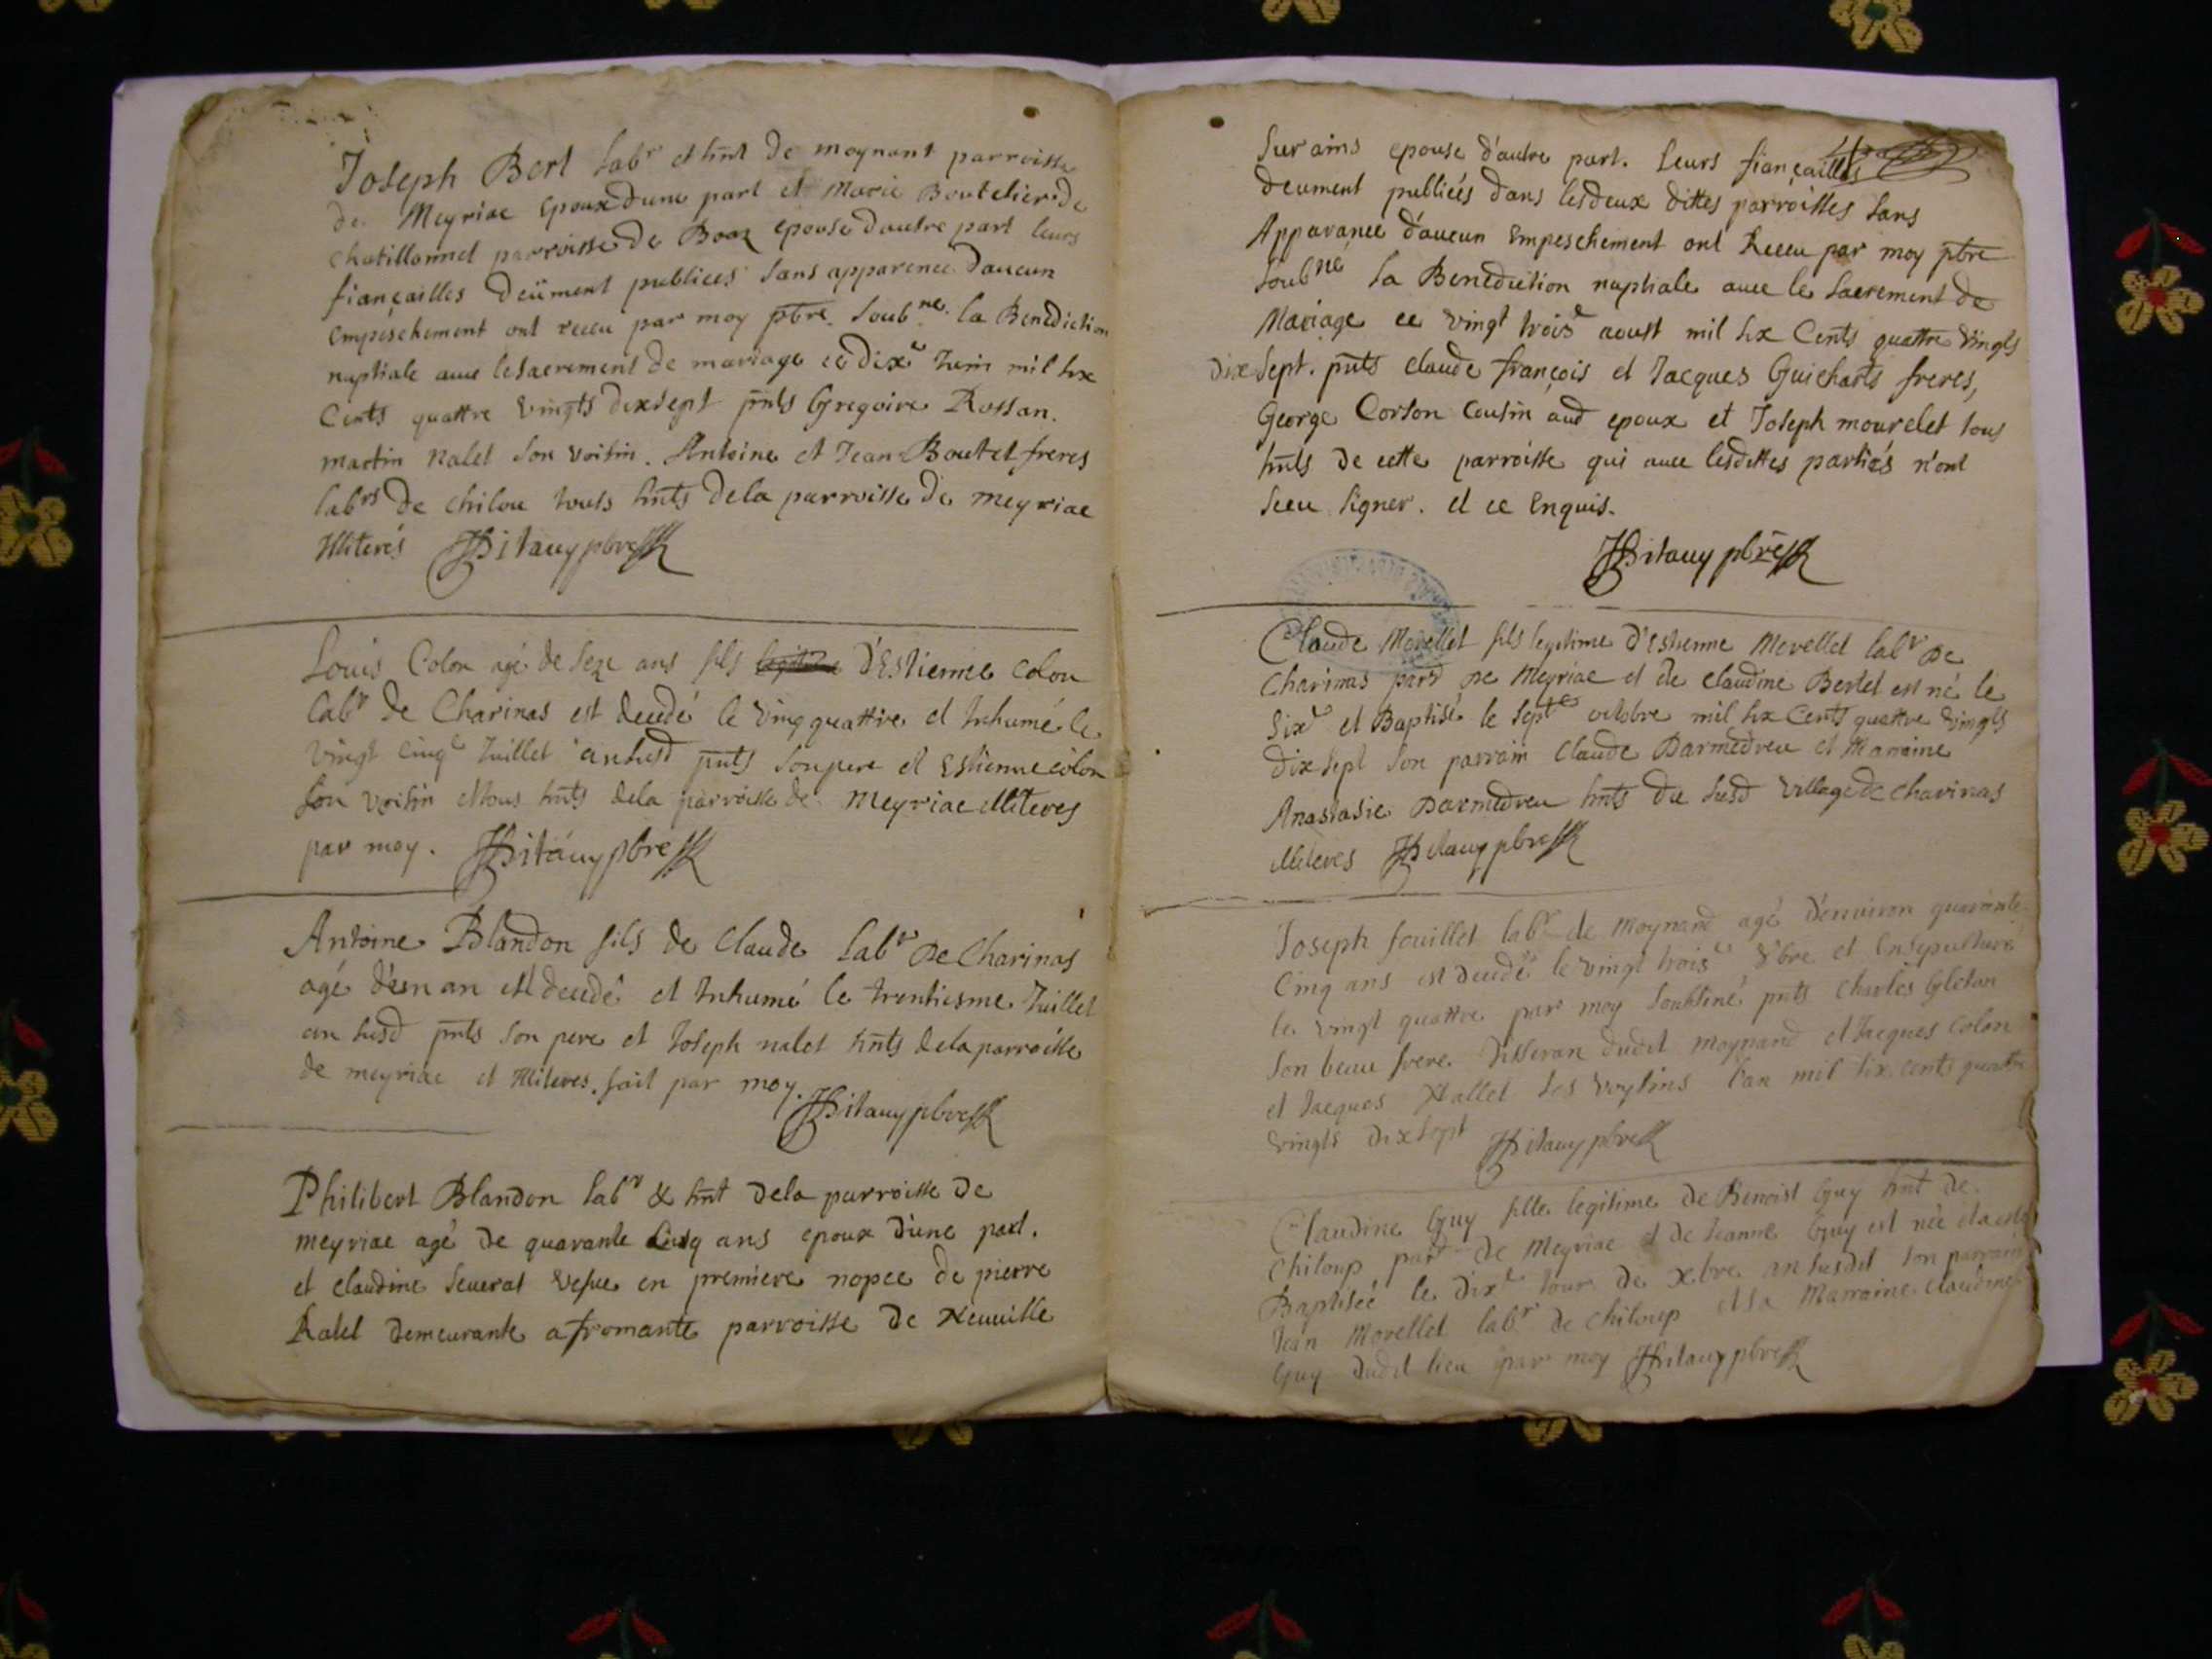 Joseph Bert labr et hñt de moynant parroisse
de Meyriac epoux dune part et Marie Boutelier de
chatillonnet parroisse de Boaz epouse dautre part leurs
fiançailles deüment publiees sans apparence daucun
empeschement ont receu par moy pbre soubne la Benediction
nuptiale avec le sacrement de mariage ce dixe Juin mil six
Cents quattre vingts dix sept pñts Gregoire Rossan.
martin nalet son voisin. Antoine et Jean Boutet freres
labrs de chilou touts hñts de la parroisse de meyriac
Illiterés JBitauy pbre
Louis Colon agé de seze ans fils d'Estienne colon
labr de Charinas est decedé le vingquattre et Inhumé le
vingt cinqe Juillet an susd pñts son pere et Estienne colon
son voisin et tous hñts de la parroisse de Meyriac illiteres
par moy. JBitauy pbre
Antoine Blandon fils de Claude labr De Charinas
agé d'un an est decedé et Inhumé le trentiesme Juillet
an susd pñts son pere et Joseph nalet hñts de la parroisse
de meyriac et Illiteres. fait par moy. JBitauy pbre
Philibert Blandon labr & hñt de la parroisse de
meyriac agé de quarante cinq ans epoux d'une part.
et claudine seuerat vefue en premiere nopce de pierre
Ralet demeurante a fromante parroisse de Neuuille
Surains epouse d'autre part. leurs fiançailles
deument publiées dans les deux dittes parroisses sans
Apparance d'aucun Empeschement ont Receu par moy pbre
soubné la Benediction nuptiale auec le sacrement de
Mariage ce vingt troise aoust mil six Cents quattre vingts
dix sept. pñts claude françois et Jacques Guicharts freres,
George Corton cousin aud epoux et Joseph mourelet tous
hñts de cette parroisse qui auec lesdittes parties n'ont
sceu signer. et ce Enquis.
JBitauy pbre
Claude Morellet fils legitime d'Estienne Morellet labr De
Charinas parr de Meyriac et de claudine Bertet est né le
sixe et Baptisé le septe octobre mil six Cents quattre vingts
dix sept son parrain Claude Darmedreu et Marraine
Anastasie Darmedreu hñts du susd village de charinas
illiteres JBitauy pbre
Joseph fouillet labr de Moynand agé d'enuiron quarante
Cinq ans est decedé le vingt troise 8bre et Ensepulturé
le vingt quattre par moy soubsiné pñts Charles Gletan
son beau frere Tisseran dudit moynand et Jacques Colon
et Jacques Nallet ses voysins l'an mil six cents quattre
vingts dix sept JBitauy pbre
Claudine Guy fille legitime de Benoist Guy hñt de
Chiloup parr de Meyriac et de Jeanne Guy est née et a esté
Baptisée le dixe Jour de xbre an susdit son parrain
Jean Morellet labr de Chiloup et sa Marraine claudine
Guy dudit lieu par moy JBitauy pbre